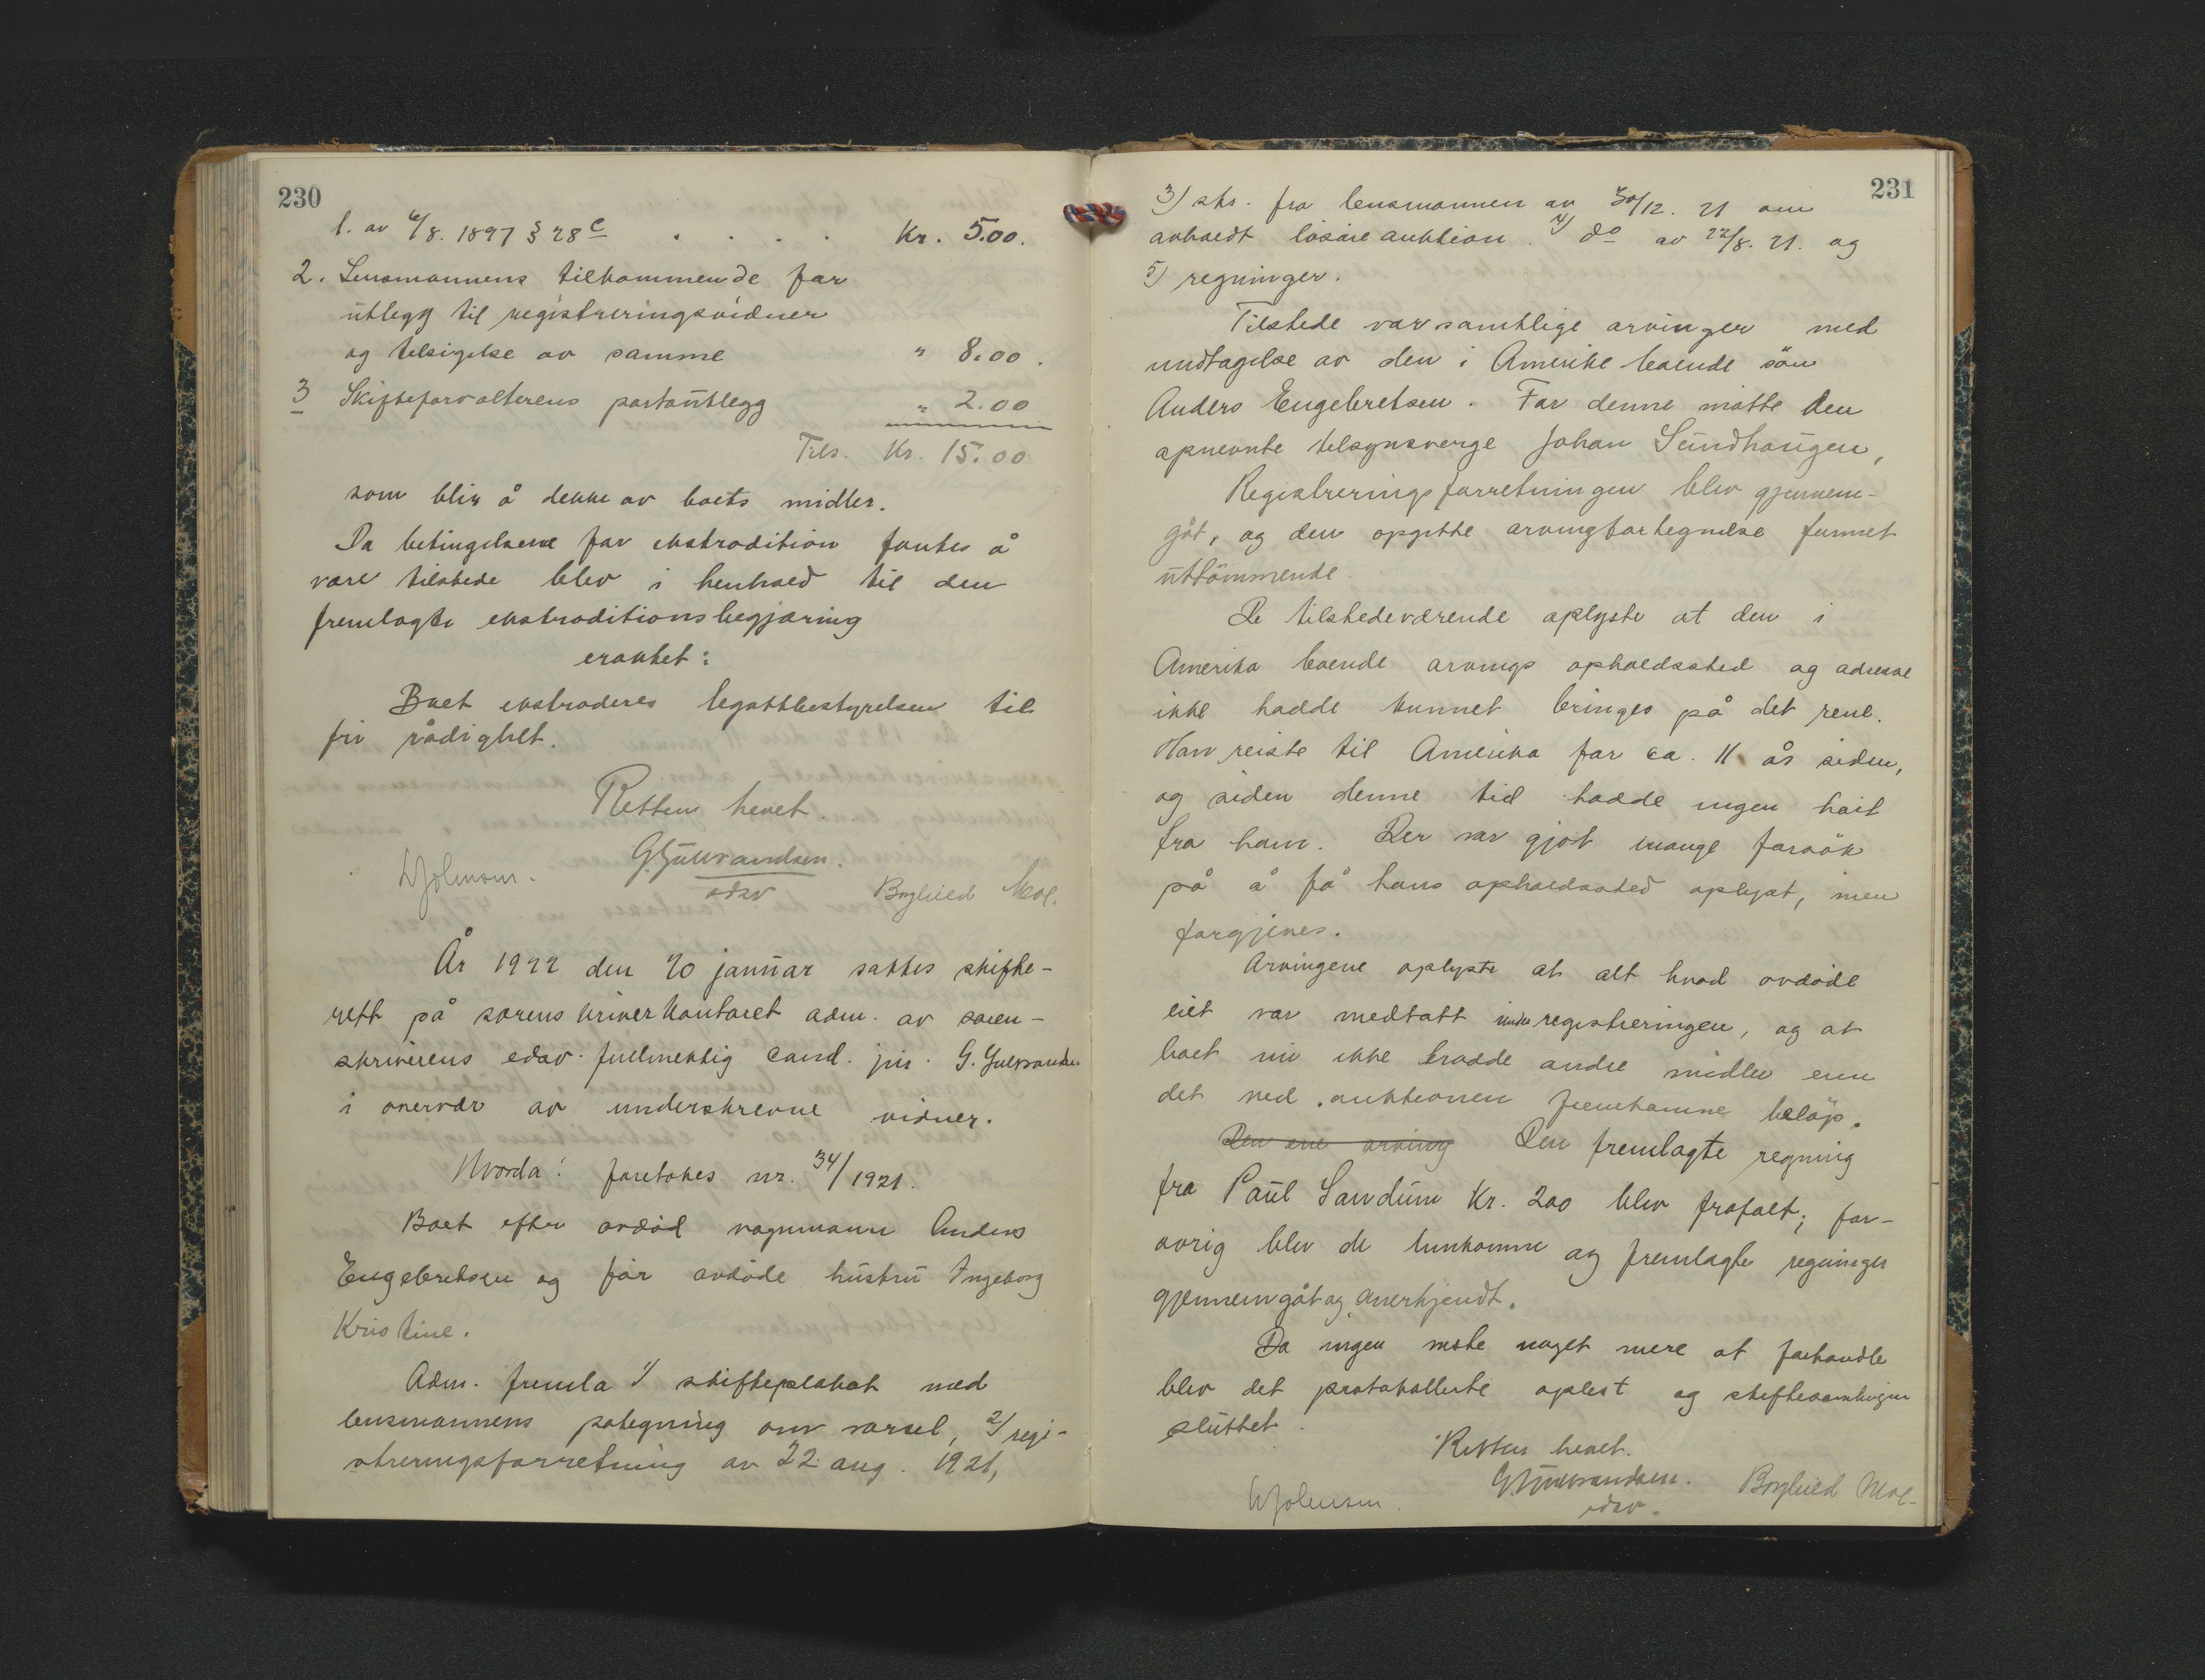 230
l. av 6/8. 1897 § 28 c . . . . Kr. 5.00.
2. Lensmannens tilkommende for
utlegg til registreringsvidner
og tilsigelse av samme " 8.00.
3 Skifteforvalterens portoutlegg " 2.00
Tils. Kr. 15.00
som blir å dekke av boets midler.
Da betingelsene for ekstradition fantes å
være tilstede blev i henhold til den
fremlagte ekstraditionsbegjæring
eraktet:
Boet ekstraderes legatbestyrelsen til
fri rådighet.
Retten hevet.
G Gulbrandsen.
edsv
Borghild Moe.
År 1922 den 20 januar sattes skifte-
rett på sorenskriverkontoret adm. av soren-
skriverens edsv. fullmektig cand. jur. G. Gulbrandsen
i overvær av underskrevne vidner.
Hvorda: foretokes nr. 34/1921.
Boet efter avdöd vognmann Anders
Engebretsen og før avdøde hustru Ingeborg
Kristine.
Adm. fremla 1/ skifteplakat med
lensmannens påtegning om varsel, 2/ regi-
streringsforretning av 22 aug. 1921,
231
3) skr. fra lensmannen av 30/12. 21 om
avholdt løsøreauktion. 4) do av 22/8. 21. og
5) regninger.
Tilstede var samtlige arvinger med
undtagelse av den i Amerika boende sön
Anders Engebretsen. For denne møtte den
opnevnte tilsynsverge Johan Sundhaugen,
Registreringsforretningen blev gjennem-
gåt, og den opgitte arvingfortegnelse funnet
uttömmende.
De tilstedeværende oplyste at den i
Amerika boende arvings opholdssted og adresse
ikke hadde kunnet bringes på det rene.
Han reiste til Amerika for ca. 11 år siden,
og siden denne tid hadde ingen hørt
fra ham. Der var gjort mange forsök
på å få hans opholdssted oplyst, men
forgjeves.
Arvingene oplyste at alt hvad avdöde
eiet var medtatt under registreringen, og at
boet nu ikke hadde andre midler enn
det ved auktionen fremkomne beløp.
Den ene arving Den fremlagte regning
fra Paul Sandum Kr. 200 blev frafalt; for-
øvrig blev de innkomne og fremlagte regninger
gjennemgåt og anerkjendt.
Da ingen visste noget mere at forhandle
blev det protokollerte oplest og skiftesamlingen
sluttet.
Retten hevet.
G Gulbrandsen.
edsv.
Borghild Moe-